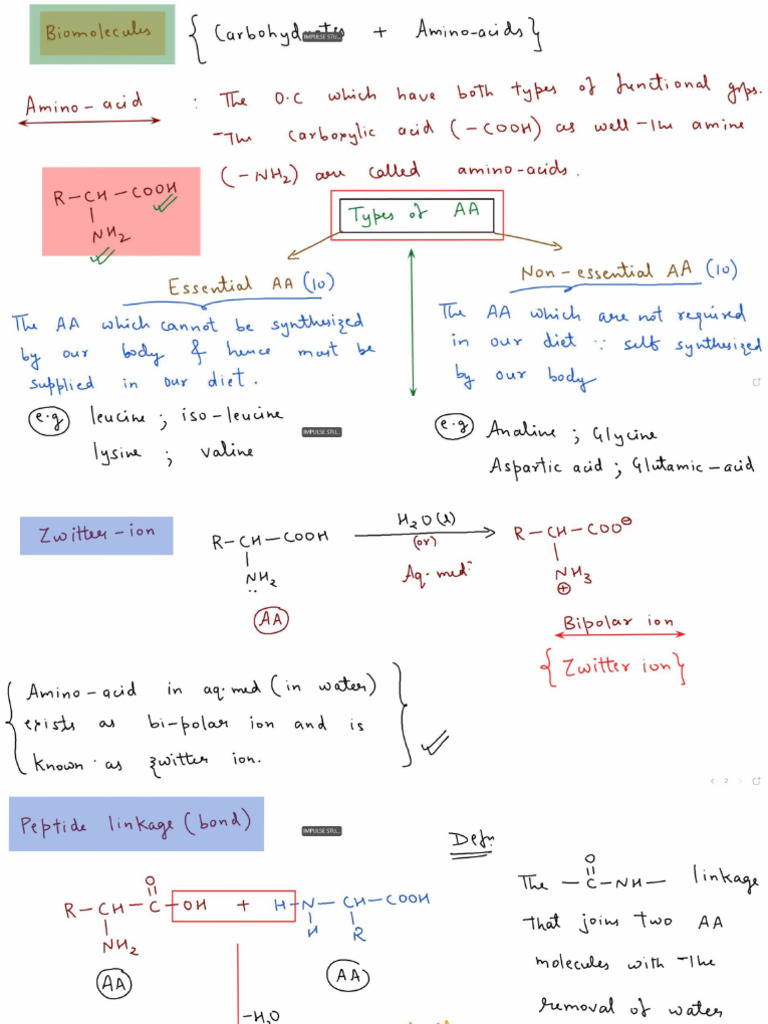 Biomolecules { Carbohydrates + Amino-acids }
IMPULSE STU...
Amino-acid : The O.C which have both types of functional grps.
The carboxylic acid (-COOH) as well the amine
(-NH2) are called amino-acids.
R-CH-COOH
NH2
Types of AA
Essential AA (10)
The AA which cannot be synthesized
by our body & hence must be
supplied in our diet.
e.g leucine ; iso-leucine
lysine ; valine
Non-essential AA (10)
The AA which are not required
in our diet ∵ self synthesized
by our body
e.g Analine ; Glycine
Aspartic acid ; Glutamic-acid
IMPULSE STU...
Zwitter-ion
R-CH-COOH
NH2
AA
H2O(l)
(or)
Aq. med.
R-CH-COO⊖
NH3
⊕
Bipolar ion
{ Zwitter ion }
Amino-acid in aq.med (in water)
exists as bi-polar ion and is
known as zwitter ion.
< 2 >
Peptide linkage (bond)
IMPULSE STU...
O
R-CH-C-OH + H-N-CH-COOH
NH2 H R
AA AA
-H2O
Defn:
O
The -C-NH- linkage
that joins two AA
molecules with the
removal of water